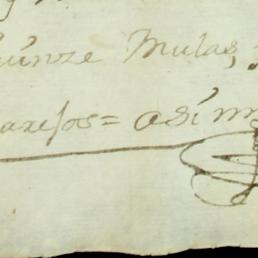 Quinze Mulas,
arejos = asi m